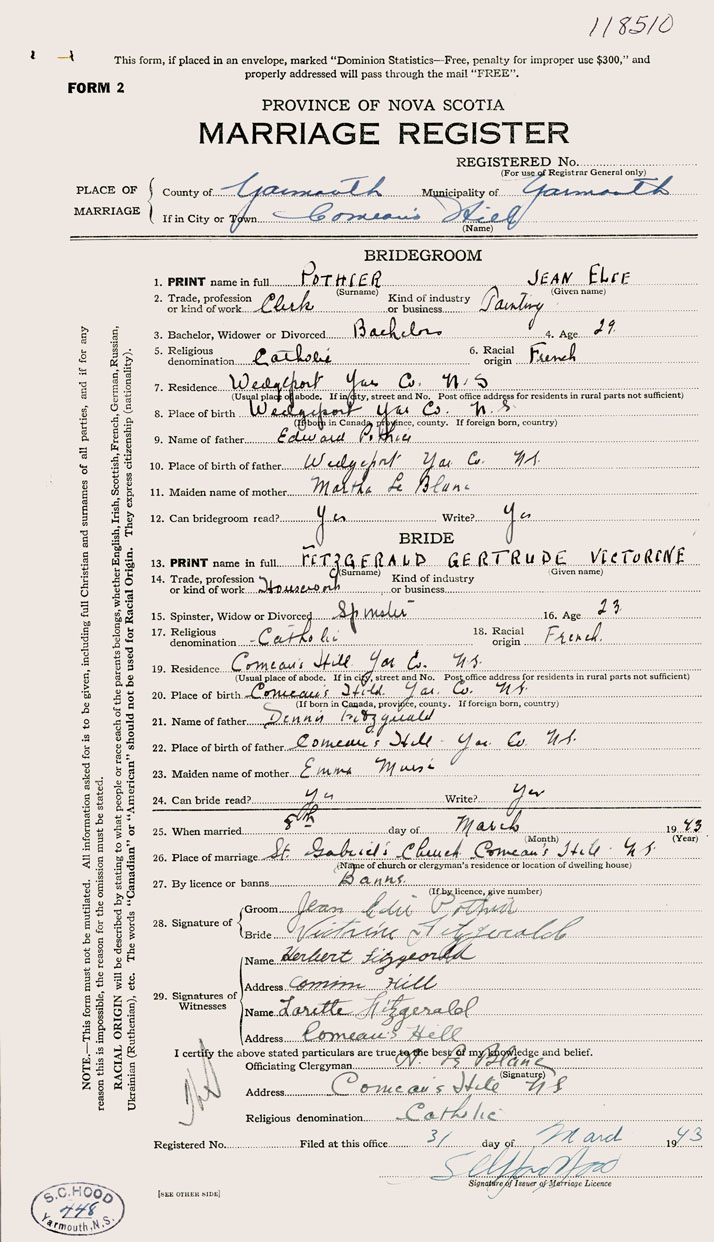 118510
This form, if placed in an envelope, marked "Dominion Statistics—Free, penalty for improper use $300," and
properly addressed will pass through the mail "FREE".
FORM 2
PROVINCE OF NOVA SCOTIA
MARRIAGE REGISTER
REGISTERED No.
(For use of Registrar General only)
PLACE OF MARRIAGE
County of Yarmouth Municipality of Yarmouth
If in City or Town Comeau's Hill
(Name)
BRIDEGROOM
1. PRINT name in full POTHIER JEAN ELIE
(Surname) (Given name)
2. Trade, profession or kind of work Clerk Kind of industry or business
3. Bachelor, Widower or Divorced Bachelor 4. Age 29
5. Religious denomination Catholic 6. Racial origin French
7. Residence Wedgeport Yar Co. N.S
(Usual place of abode. If in city, street and No. Post office address for residents in rural parts not sufficient)
8. Place of birth Wedgeport Yar Co. N.S.
(If born in Canada, province, county. If foreign born, country)
9. Name of father Edward Pothier
10. Place of birth of father Wedgeport Yar Co. N.S.
11. Maiden name of mother Martha Le Blanc
12. Can bridegroom read? Yes Write? Yes
BRIDE
13. PRINT name in full FITZGERALD GERTRUDE VICTORINE
(Surname) (Given name)
14. Trade, profession or kind of work Housework Kind of industry or business
15. Spinster, Widow or Divorced Spinster 16. Age 23
17. Religious denomination Catholic 18. Racial origin French.
19. Residence Comeau's Hill Yar Co. N.S.
(Usual place of abode. If in city, street and No. Post office address for residents in rural parts not sufficient)
20. Place of birth Comeau's Hill Yar. Co. N.S.
(If born in Canada, province, county. If foreign born, country)
21. Name of father Dennis Fitzgerald
22. Place of birth of father Comeau's Hill Yar. Co N.S.
23. Maiden name of mother Emma Muise
24. Can bride read? Yes Write? Yes
25. When married 8th day of March 1943
(Month) (Year)
26. Place of marriage St. Gabriel's Church Comeau's Hill N.S.
(Name of church or clergyman's residence or location of dwelling house)
27. By licence or banns Banns
(If by licence, give number)
28. Signature of
Groom Jean Elie Pothier
Bride Victrine Fitzgerald
29. Signatures of Witnesses
Name Herbert Fitzgeorld
Address Hill
Name Lorette Fitzgerald
Address Comeau's Hill
I certify the above stated particulars are true to the best of my knowledge and belief.
Officiating Clergyman Le Blanc
(Signature)
Address Comeau's Hill N S
Religious denomination Catholic
Registered No. Filed at this office 31 day of March 1943
Signature of Issuer of Marriage Licence
[SEE OTHER SIDE]
S.C. HOOD
448
Yarmouth, N.S.
NOTE.—This form must not be mutilated. All information asked for is to be given, including full Christian and surnames of all parties, and if for any
reason this is impossible, the reason for the omission must be stated.
RACIAL ORIGIN will be described by stating to what people or race each of the parents belongs, whether English, Irish, Scottish, French, German, Russian,
Ukrainian (Ruthenian), etc. The words "Canadian" or "American" should not be used for Racial Origin. They express citizenship (nationality).